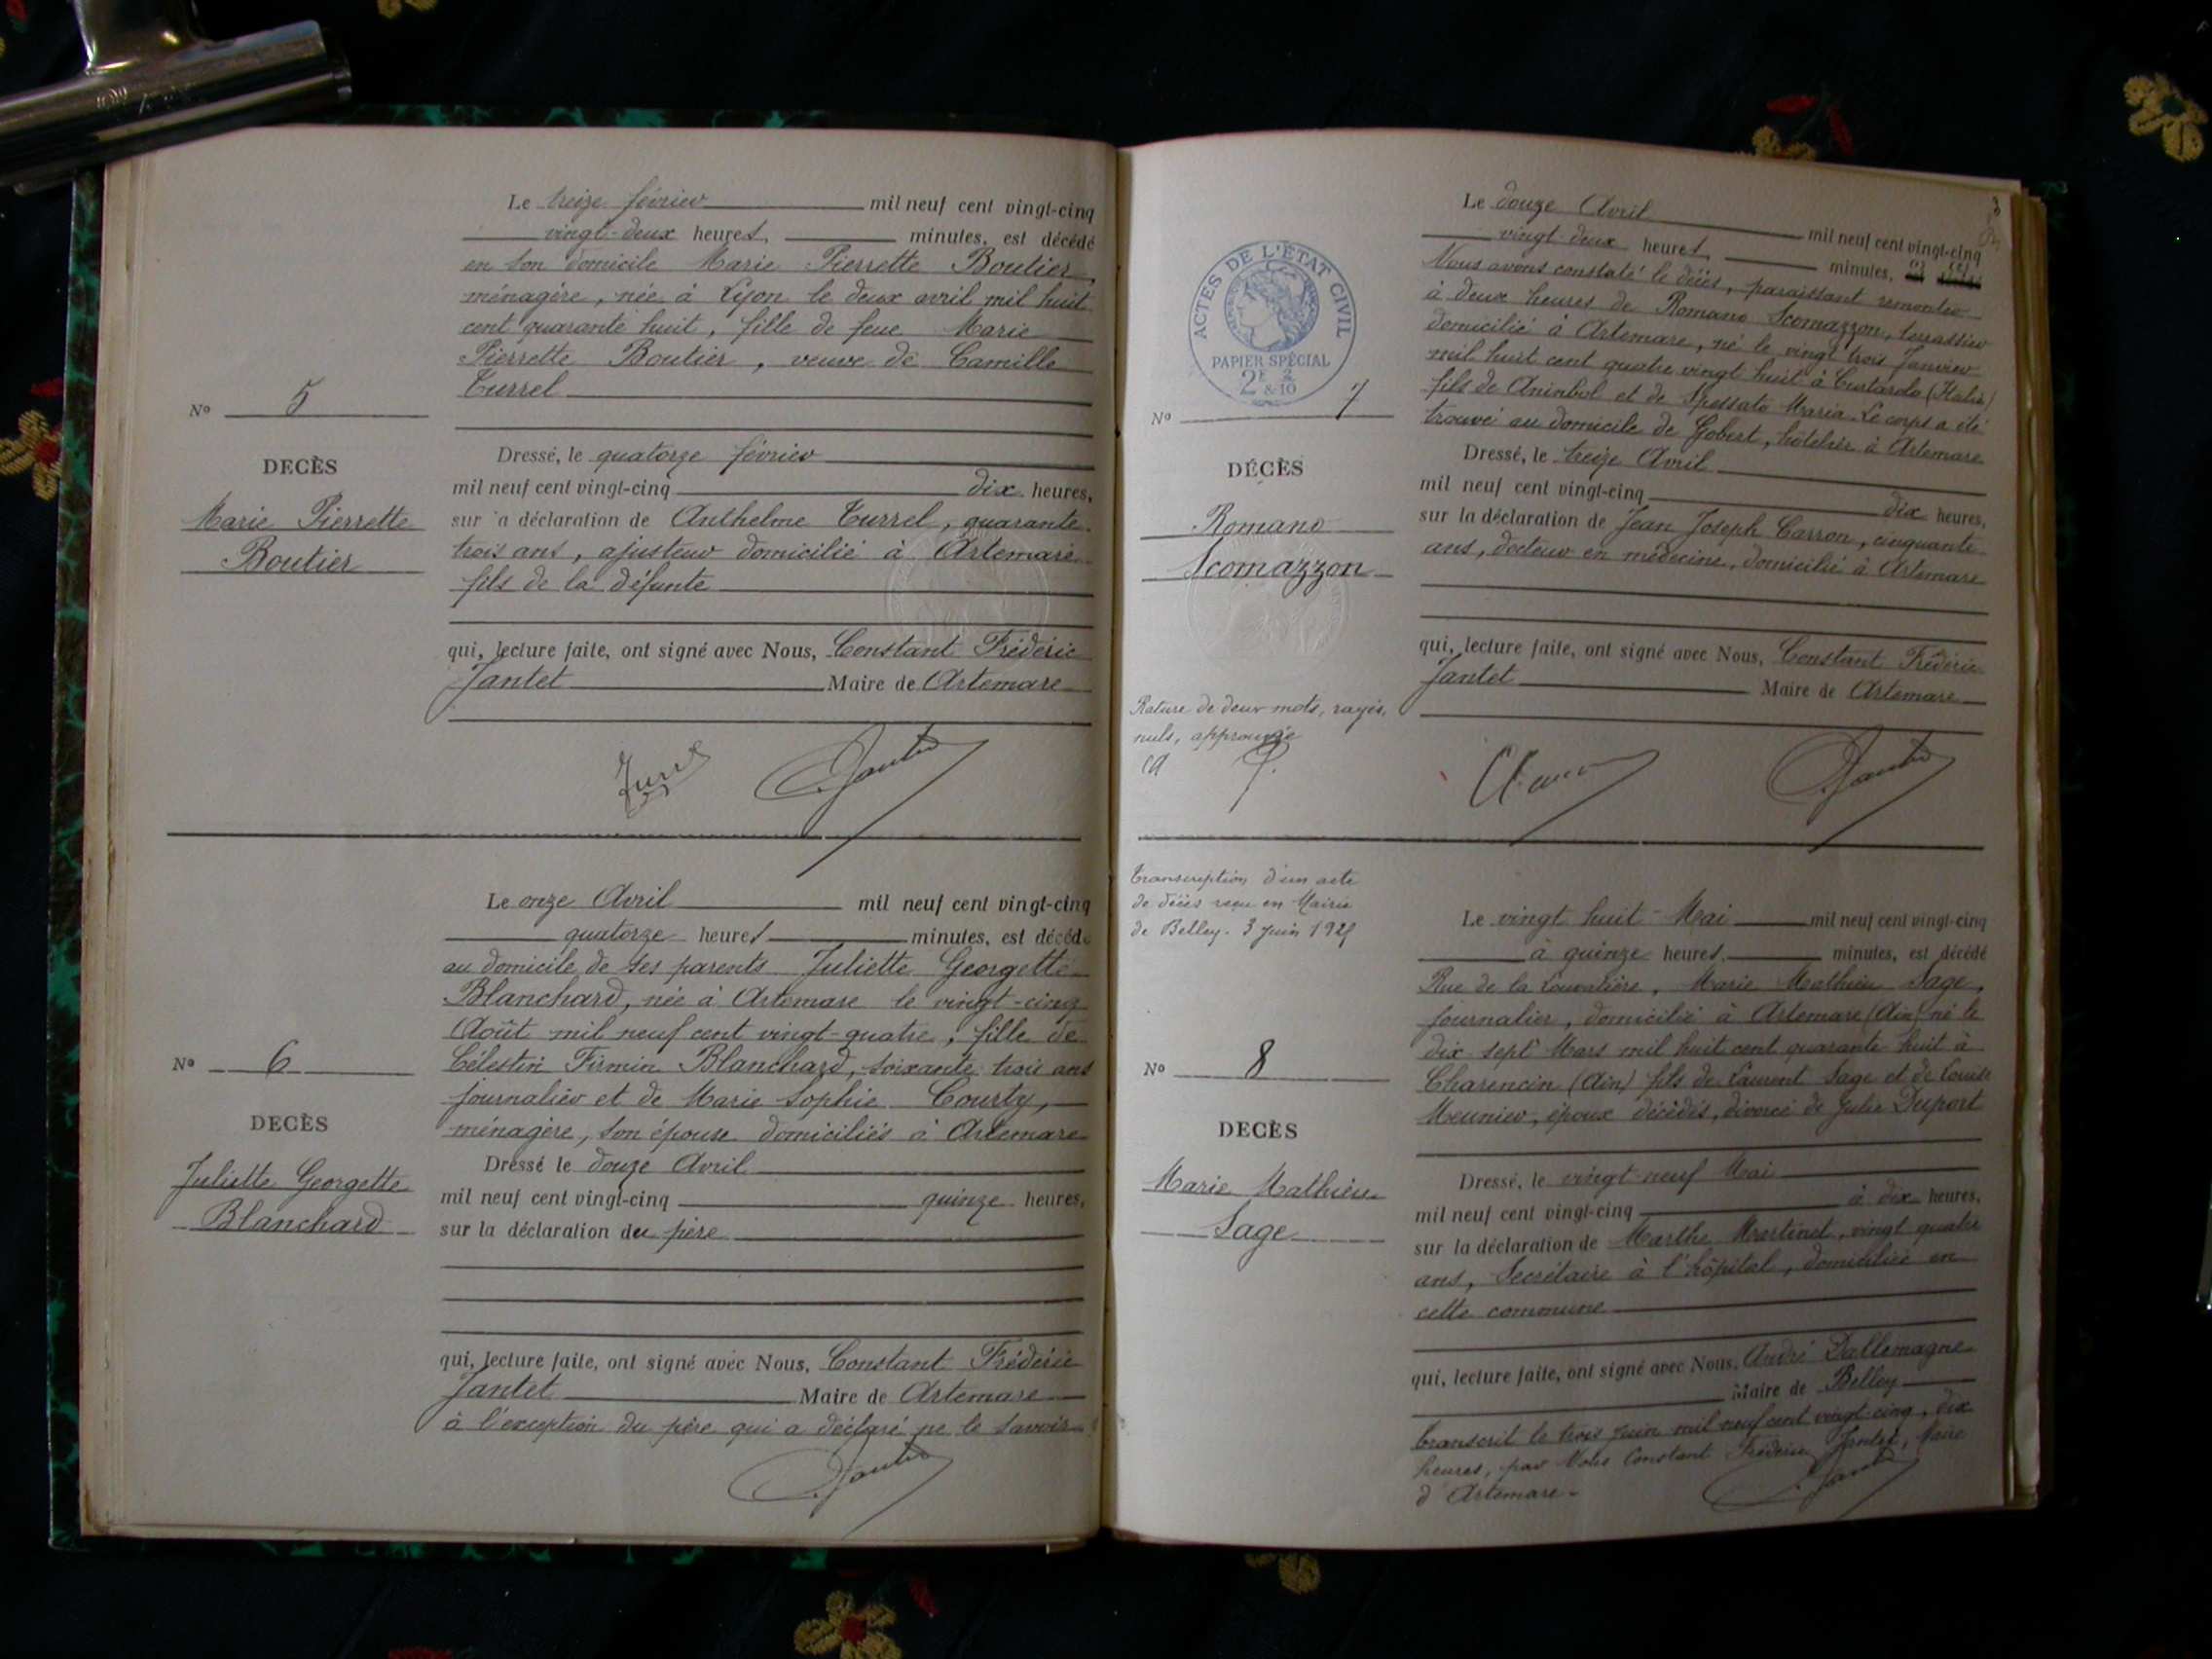 Le treize février mil neuf cent vingt-cinq
vingt-deux heures, minutes, est décédé
en son domicile Marie Pierrette Boutier
ménagère, née à Lyon le deux avril mil huit
cent quarante huit, fille de feue Marie
Pierrette Boutier, veuve de Camille
Turrel
No 5
DECÈS
Marie Pierrette
Boutier
Dressé, le quatorze février
mil neuf cent vingt-cinq dix heures,
sur a déclaration de Anthelme Turrel, quarante
trois ans, ajusteur domicilié à Artemare
fils de la défunte
qui, lecture faite, ont signé avec Nous, Constant Frédéric
Jantet Maire de Artemare
Le onze Avril mil neuf cent vingt-cinq
quatorze heures minutes, est décédé
au domicile de ses parents Juliette Georgette
Blanchard, née à Artemare le vingt-cinq
Août mil neuf cent vingt-quatre, fille de
Célestin Firmin Blanchard, soixante trois ans
journalier et de Marie Sophie Courty,
ménagère, son épouse domiciliés à Artemare
No 6
DECÈS
Juliette Georgette
Blanchard
Dressé le douze Avril
mil neuf cent vingt-cinq quinze heures,
sur la déclaration du père
qui, lecture faite, ont signé avec Nous, Constant Frédéric
Jantet Maire de Artemare
à l'exception du père qui a déclaré ne le savoir
Jantet
ACTES DE L'ÉTAT CIVIL
PAPIER SPÉCIAL
2F 2/10
Le douze Avril mil neuf cent vingt-cinq
vingt-deux heures, minutes,
Nous avons constaté le décès, paraissant remonter
à deux heures de Romano Scomazzon, terrassier
domicilié à Artemare, né le vingt trois Janvier
mil huit cent quatre vingt huit à (Italie)
fils de et de Spessato Maria. Le corps a été
trouvé au domicile de Gobert, hôtelier à Artemare
No 7
DÉCÈS
Romano
Scomazzon
Dressé, le treize Avril
mil neuf cent vingt-cinq dix heures,
sur la déclaration de Jean Joseph Carron, cinquante
ans, docteur en médecine, domicilié à Artemare
qui, lecture faite, ont signé avec Nous, Constant Frédéric
Jantet Maire de Artemare
Rature de deux mots, rayés,
nuls, approuvée
Jantet
Transcription d'un acte
de décès reçu en Mairie
de Belley. 3 Juin 1925
Le vingt huit Mai mil neuf cent vingt-cinq
à quinze heures, minutes, est décédé
Rue de la Marie Mathieu Sage,
journalier, domicilié à Artemare (Ain) né le
dix sept Mars mil huit cent quarante huit à
Charencin (Ain) fils de Laurent Sage et de Louise
Meunier, époux décédés, divorcé de Julie Duport
No 8
DECÈS
Marie Mathieu
Sage
Dressé, le vingt-neuf Mai
mil neuf cent vingt-cinq à dix heures,
sur la déclaration de Marthe Martinet, vingt quatre
ans, Secrétaire à l'hôpital, domiciliée en
cette commune
qui, lecture faite, ont signé avec Nous, André Dallemagne
Maire de Belley
Transcrit le trois juin mil neuf cent vingt-cinq, dix
heures, par Nous Constant Frédéric Jantet, Maire
d'Artemare.
Jantet